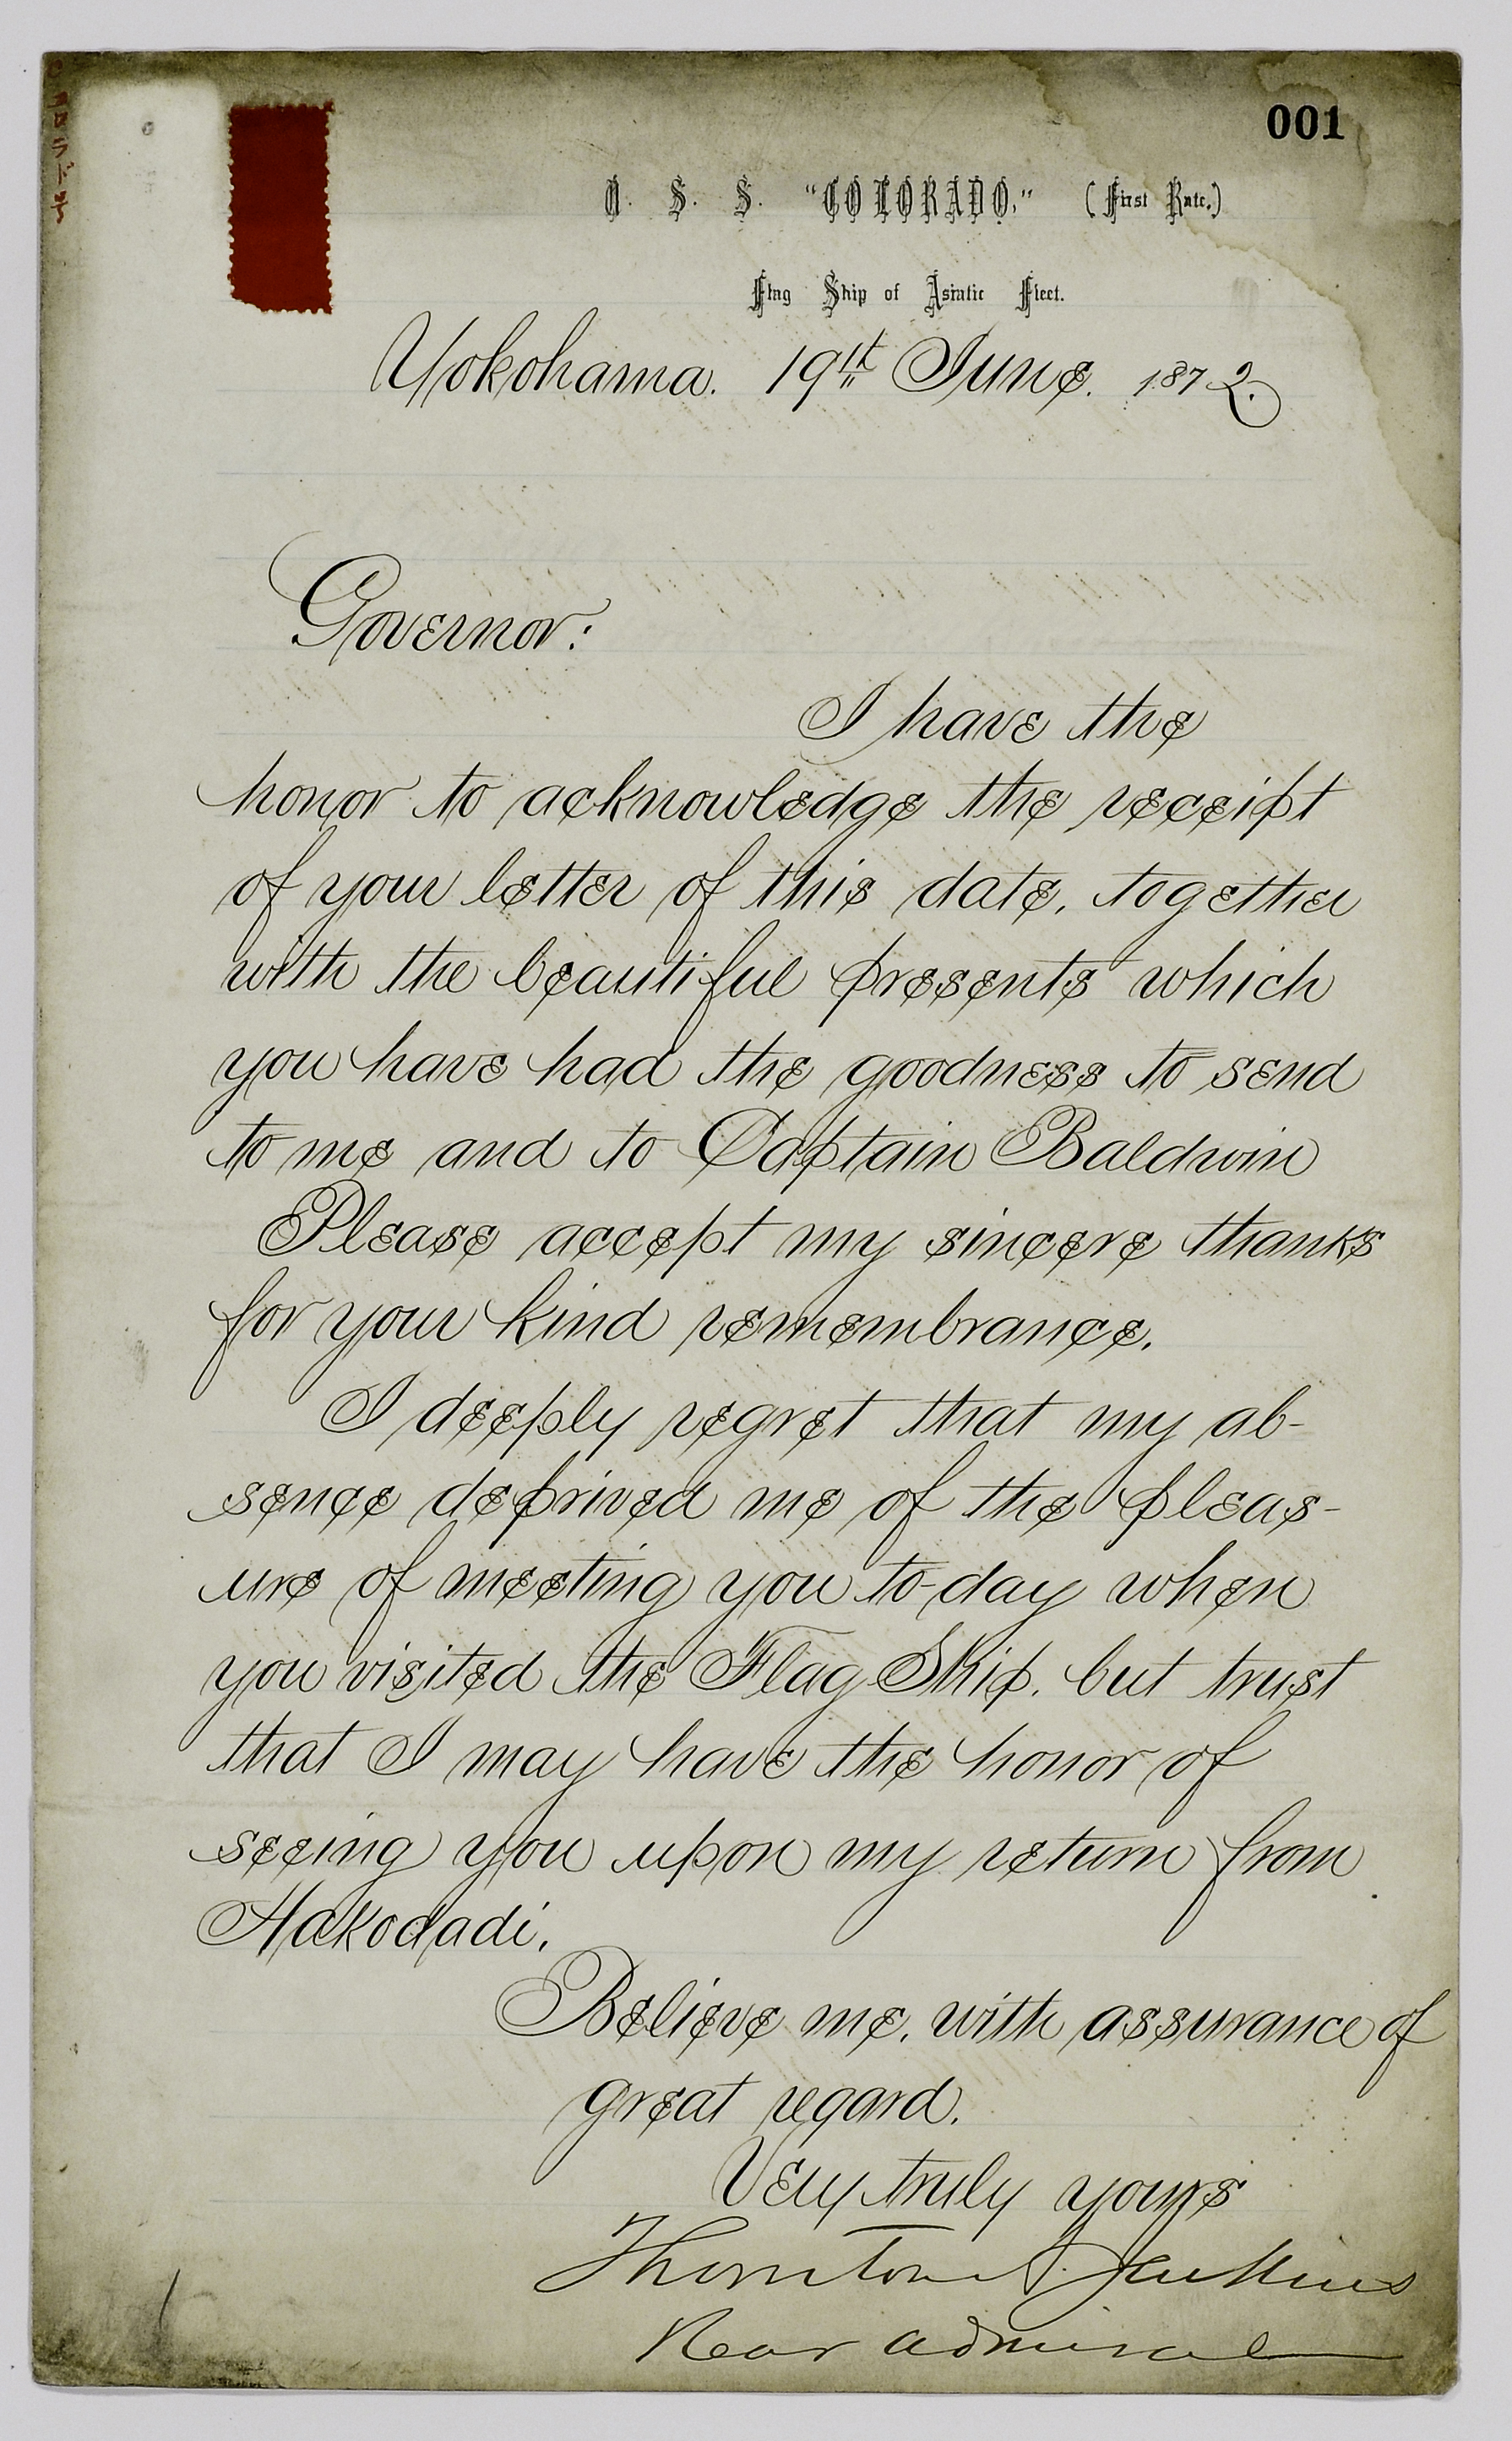 001
U. S. S. "COLORADO," (First Rate.)
Flag Ship of Asiatic Fleet.
Yokohama. 19th June. 1872.
Governor:
I have the
honor to acknowledge the receipt
of your letter of this date, together
with the beautiful presents which
you have had the goodness to send
to me and to Captain Baldwin
Please accept my sincere thanks
for your kind remembrance.
I deeply regret that my ab-
sence deprived me of the pleas-
ure of meeting you to-day when
you visited the Flag Ship, but trust
that I may have the honor of
seeing you upon my return from
Hakodadi.
Believe me, with assurance of
great regard,
Very truly yours
Thornton A. Jenkins
Rear Admiral